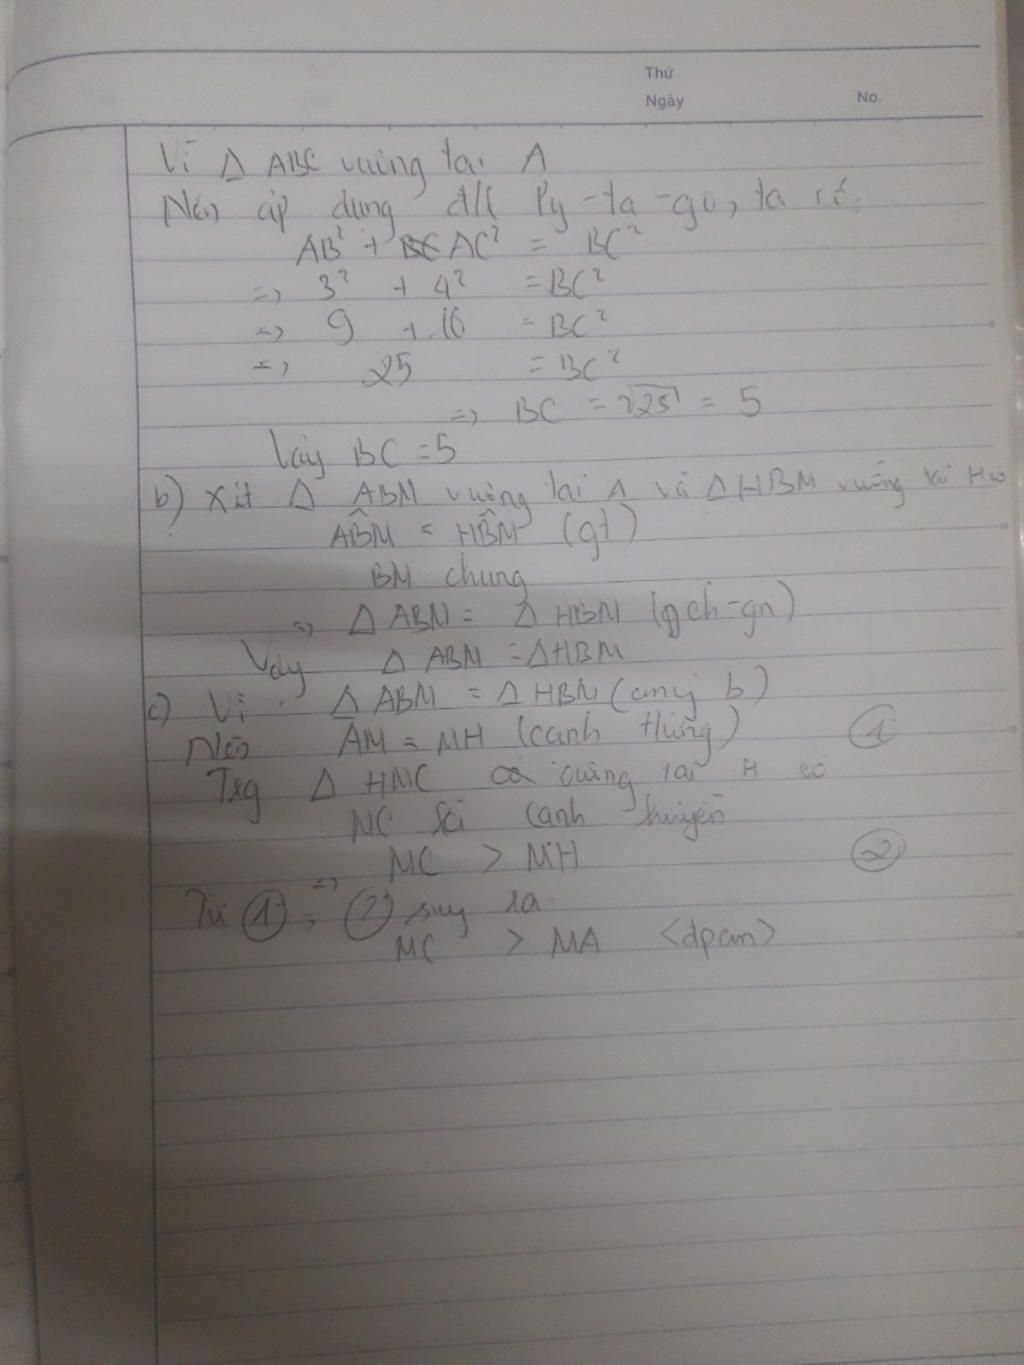 Thứ
Ngày No.
Vì Δ ABC vuông tại A
Nên áp dụng đ/l Py-ta-go, ta có:
AB² + AC² = BC²
=> 3² + 4² = BC²
=> 9 + 16 = BC²
=> 25 = BC²
=> BC = √25 = 5
Vậy BC = 5
b) Xét Δ ABM vuông tại A và Δ HBM vuông tại H có
ABM = HBM (gt)
BM chung
=> Δ ABM = Δ HBM (gch-gn)
Vậy Δ ABM = Δ HBM
c) Vì Δ ABM = Δ HBM ( b)
Nên AM = MH (cạnh tứng) ①
Δ HMC vuông tại H có
MC cạnh huyền
=> MC > MH ②
Từ ①, ② suy ra
MC > MA <đpcm>